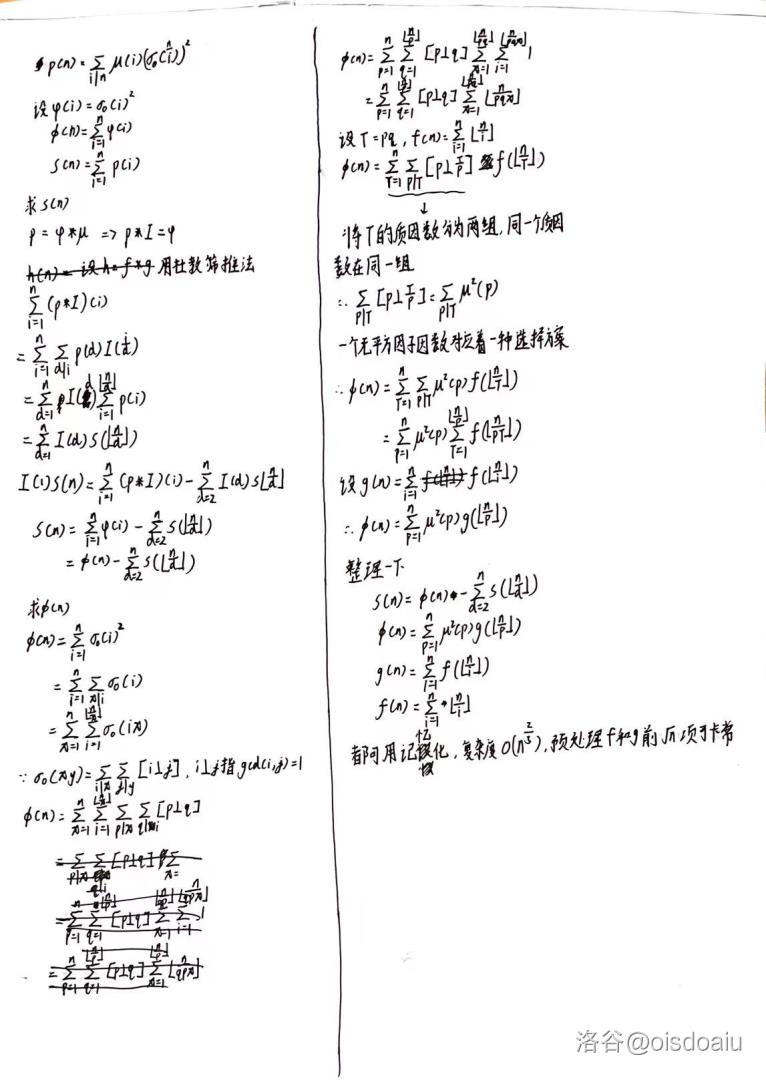 ρ(n)=∑_{i|n} μ(i)(σ₀(n/i))²
设 φ(i)=σ₀(i)²
ϕ(n)=∑_{i=1}^{n} φ(i)
S(n)=∑_{i=1}^{n} ρ(i)
求S(n)
ρ=φ*μ => ρ*I=φ
用杜教筛推法
∑_{i=1}^{n} (ρ*I)(i)
=∑_{i=1}^{n} ∑_{d|i} ρ(d)I(i/d)
=∑_{d=1}^{n} I(d)∑_{i=1}^{⌊n/d⌋} ρ(i)
=∑_{d=1}^{n} I(d)S(⌊n/d⌋)
I(1)S(n)=∑_{i=1}^{n} (ρ*I)(i)-∑_{d=2}^{n} I(d)S⌊n/d⌋
S(n)=∑_{i=1}^{n} φ(i)-∑_{d=2}^{n} S(⌊n/d⌋)
=ϕ(n)-∑_{d=2}^{n} S(⌊n/d⌋)
求ϕ(n)
ϕ(n)=∑_{i=1}^{n} σ₀(i)²
=∑_{i=1}^{n} ∑_{x|i} σ₀(i)
=∑_{x=1}^{n} ∑_{i=1}^{⌊n/x⌋} σ₀(ix)
∵σ₀(xy)=∑_{i|x} ∑_{j|y} [i⊥j], i⊥j指gcd(i,j)=1
ϕ(n)=∑_{x=1}^{n} ∑_{i=1}^{⌊n/x⌋} ∑_{p|x} ∑_{q|xi} [p⊥q]
=∑_{p=1}^{n} ∑_{q=1}^{⌊n/p⌋} [p⊥q] ∑_{x=1} ∑_{i=1} 1
=∑_{p=1}^{n} ∑_{q=1}^{⌊n/p⌋} [p⊥q] ∑_{x=1} ⌊n/qpx⌋
ϕ(n)=∑_{p=1}^{n} ∑_{q=1}^{⌊n/p⌋} [p⊥q] ∑_{x=1}^{⌊n/pq⌋} ∑_{i=1}^{⌊n/pqx⌋} 1
=∑_{p=1}^{n} ∑_{q=1}^{⌊n/p⌋} [p⊥q] ∑_{x=1}^{⌊n/pq⌋} ⌊n/pqx⌋
设T=pq, f(n)=∑_{i=1}^{n} ⌊n/i⌋
ϕ(n)=∑_{T=1}^{n} ∑_{p|T} [p⊥T/p] f(⌊n/T⌋)
↓
将T的质因数分为两组,同一个质因
数在同一组
∴∑_{p|T} [p⊥T/p]=∑_{p|T} μ²(p)
一个无平方因子因数对应着一种选择方案
∴ϕ(n)=∑_{T=1}^{n} ∑_{p|T} μ²(p)f(⌊n/T⌋)
=∑_{p=1}^{n} μ²(p)∑_{T=1}^{⌊n/p⌋} f(⌊n/pT⌋)
设g(n)=∑_{i=1}^{n} f(⌊n/i⌋)
∴ϕ(n)=∑_{p=1}^{n} μ²(p)g(⌊n/p⌋)
整理一下
S(n)=ϕ(n)-∑_{d=2}^{n} S(⌊n/d⌋)
ϕ(n)=∑_{p=1}^{n} μ²(p)g(⌊n/p⌋)
g(n)=∑_{i=1}^{n} f(⌊n/i⌋)
f(n)=∑_{i=1}^{n} ⌊n/i⌋
都可用记忆化,复杂度O(n^{2/3}),预处理f和g前√n项可卡常
洛谷@oisdoaiu